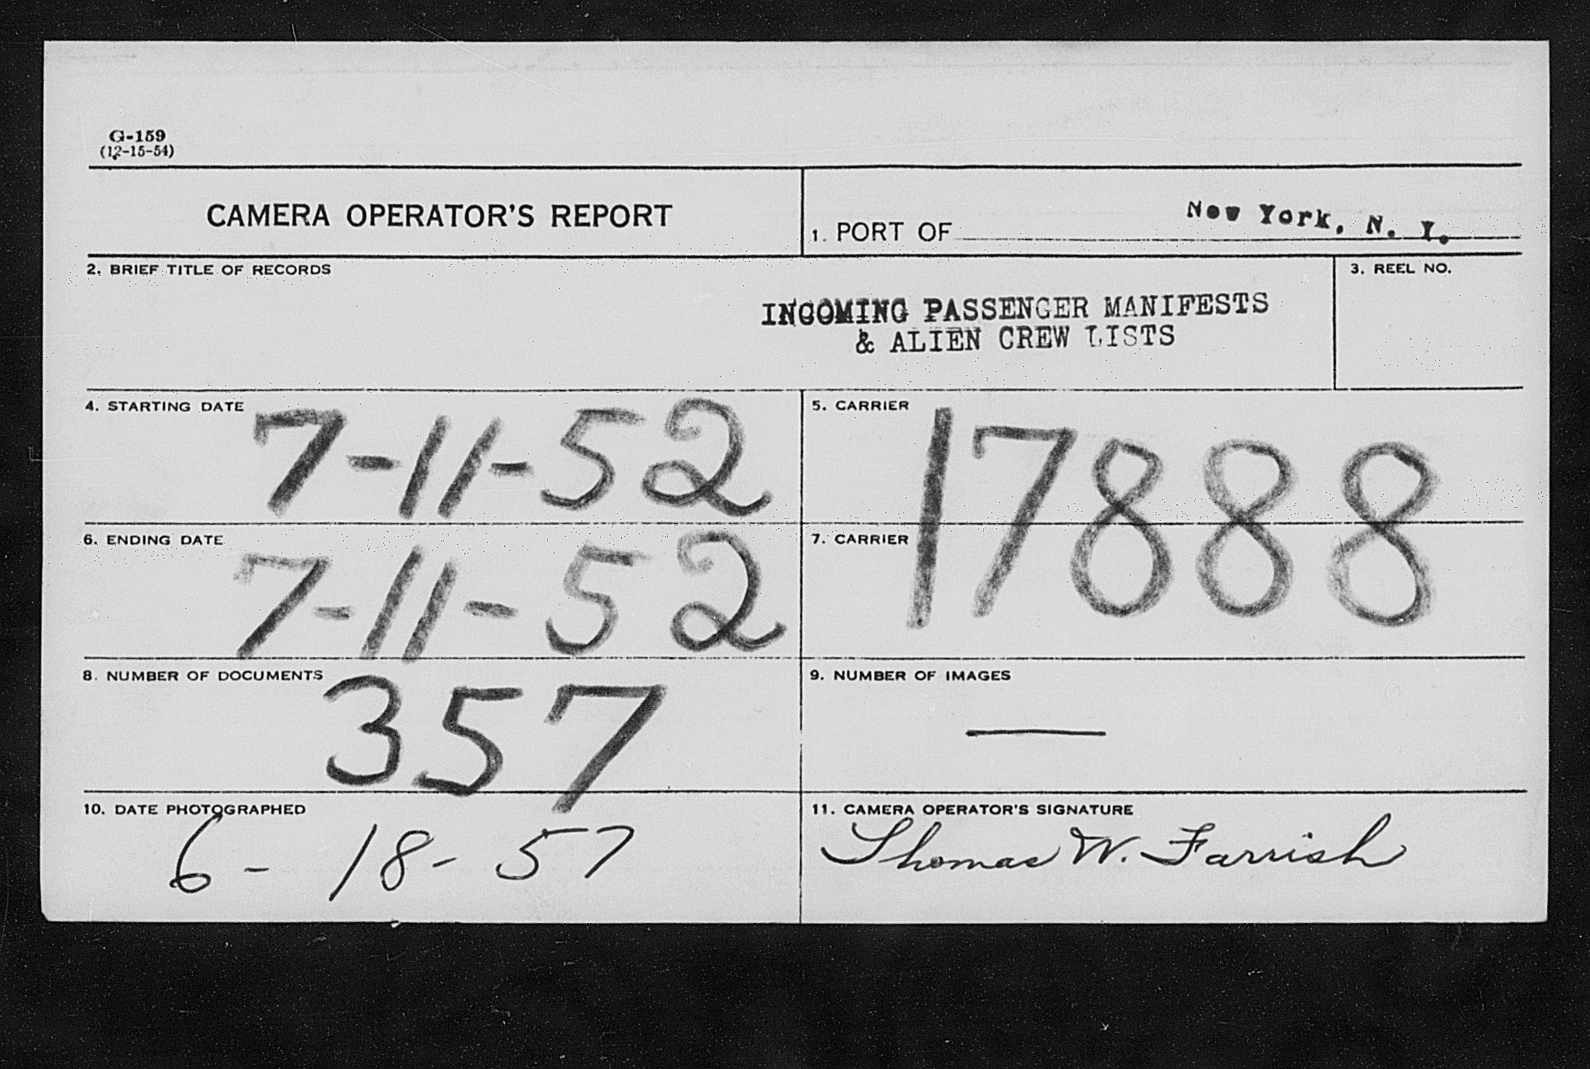 G-159
(12-15-54)
CAMERA OPERATOR'S REPORT
1. PORT OF New York, N. Y.
2. BRIEF TITLE OF RECORDS
INCOMING PASSENGER MANIFESTS
& ALIEN CREW LISTS
3. REEL NO.
4. STARTING DATE 7-11-52
5. CARRIER 17888
6. ENDING DATE 7-11-52
7. CARRIER
8. NUMBER OF DOCUMENTS 357
9. NUMBER OF IMAGES —
10. DATE PHOTOGRAPHED
6-18-57
11. CAMERA OPERATOR'S SIGNATURE
Thomas W. Farrish